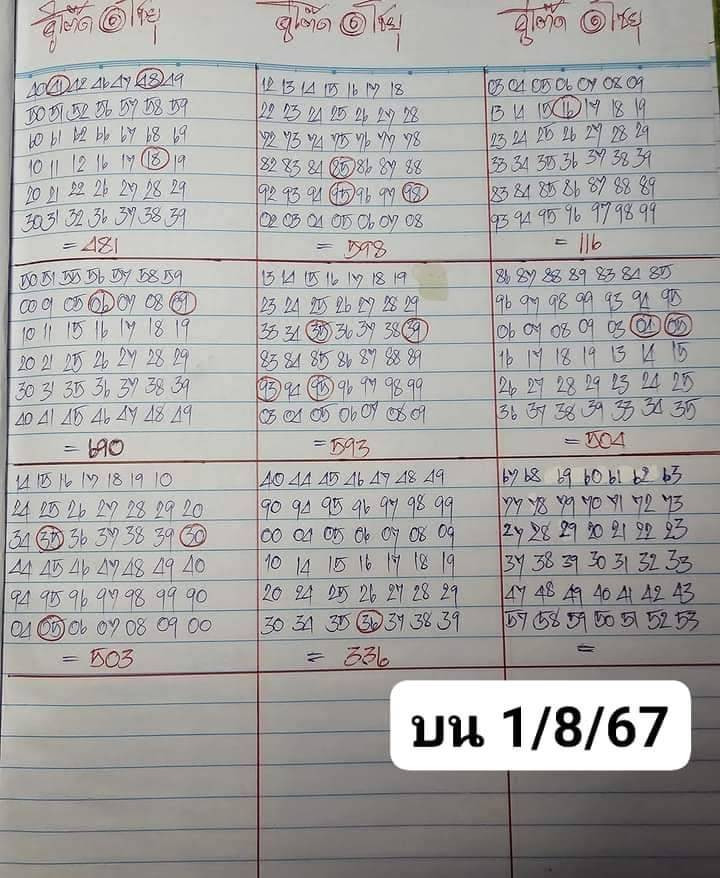 40 41 42 46 47 48 49
50 51 52 56 57 58 59
60 61 62 66 67 68 69
10 11 12 16 17 18 19
20 21 22 26 27 28 29
30 31 32 36 37 38 39
= 481
12 13 14 15 16 17 18
22 23 24 25 26 27 28
72 73 74 75 76 77 78
82 83 84 85 86 87 88
92 93 94 95 96 97 98
02 03 04 05 06 07 08
= 598
03 04 05 06 07 08 09
13 14 15 16 17 18 19
23 24 25 26 27 28 29
33 34 35 36 37 38 39
83 84 85 86 87 88 89
93 94 95 96 97 98 99
= 116
50 51 55 56 57 58 59
00 01 05 06 07 08 09
10 11 15 16 17 18 19
20 21 25 26 27 28 29
30 31 35 36 37 38 39
40 41 45 46 47 48 49
= 690
13 14 15 16 17 18 19
23 24 25 26 27 28 29
33 34 35 36 37 38 39
83 84 85 86 87 88 89
93 94 95 96 97 98 99
03 04 05 06 07 08 09
= 593
86 87 88 89 83 84 85
96 97 98 99 93 94 95
06 07 08 09 03 04 05
16 17 18 19 13 14 15
26 27 28 29 23 24 25
36 37 38 39 33 34 35
= 504
14 15 16 17 18 19 10
24 25 26 27 28 29 20
34 35 36 37 38 39 30
44 45 46 47 48 49 40
94 95 96 97 98 99 90
04 05 06 07 08 09 00
= 503
40 44 45 46 47 48 49
90 94 95 96 97 98 99
00 04 05 06 07 08 09
10 14 15 16 17 18 19
20 24 25 26 27 28 29
30 34 35 36 37 38 39
= 336
67 68 69 60 61 62 63
77 78 79 70 71 72 73
27 28 29 20 21 22 23
37 38 39 30 31 32 33
47 48 49 40 41 42 43
57 58 59 50 51 52 53
=
บน 1/8/67